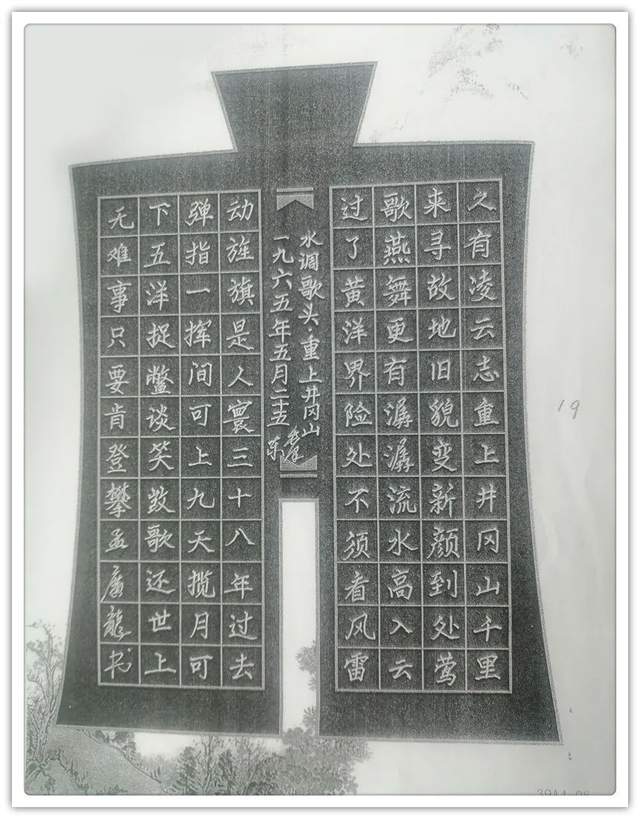 久有凌云志重上井冈山千里
来寻故地旧貌变新颜到处莺
歌燕舞更有潺潺流水高入云
过了黄洋界险处不须看风雷
水调歌头·重上井冈山
一九六五年五月二十五
动旌旗是人寰三十八年过去
弹指一挥间可上九天揽月可
下五洋捉鳖谈笑凯歌还世上
无难事只要肯登攀孟廣龍书
19